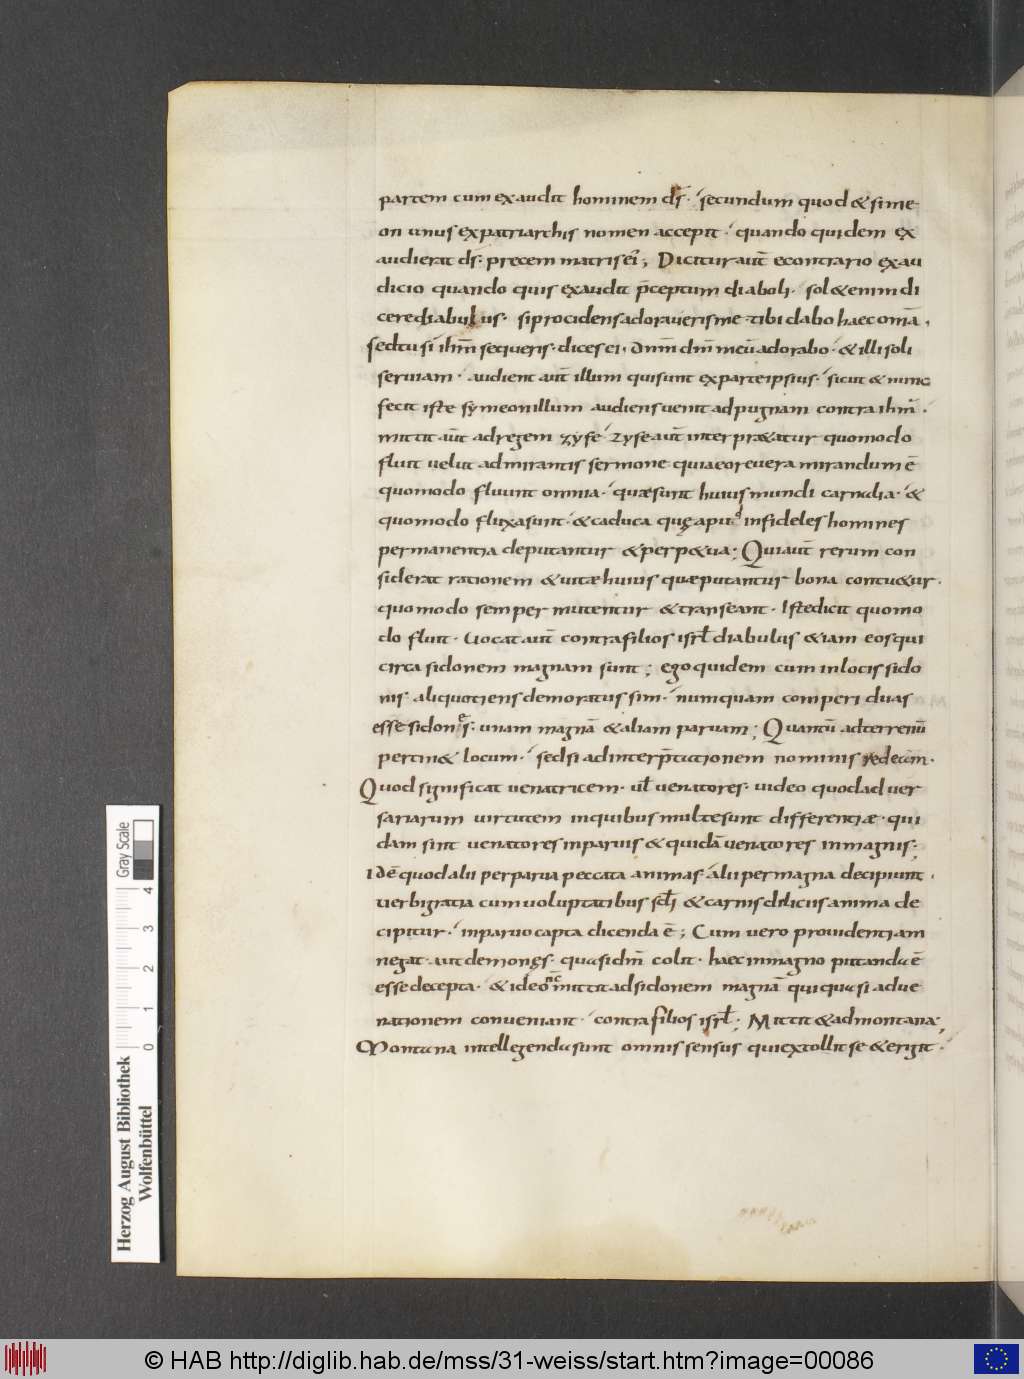 partem cum exaudit hominem ds̄. secundum quod & sime
on unus ex patriarchis nomen accepit. quando quidem ex
audierat ds̄. precem matris ei'; Dicitur aut̄ econtrario exau
dicio quando quis exaudit p̄ceptum diaboli. sol& enim di
cere diabulus. si procidens adoraueris me tibi dabo haec omā.
sed tu si ihm̄ sequeris. dices ei. dnm̄ dm̄ meū adorabo. & illi soli
seruiam. audient aut̄ illum qui sunt ex parte ipsius. sicut & nunc
fecit iste symeon illum audiens uenit ad pugnam contra ihm̄.
mittit aūt ad regem zyfe zyfe aut̄ interpr&atur quomodo
fluit uelut admirantis sermone quia eo reuera mirandum ē
quomodo fluunt omnia. quae sunt huius mundi carnalia. &
quomodo fluxa sunt. & caduca quę apud infideles homines
permanentia deputantur & perp&ua; Qui aut̄ rerum con
siderat rationem & uitae huius quae putantur bona contu&ur.
quomodo semper mutentur & transeant. Iste dicit quomo
do fluit. Uocat aut̄ contra filios isrl̄ diabulus & iam eos qui
circa sidonem magnam sunt; ego quidem cum in locis sido
nis. aliquotiens demoratus sim. numquam comperi duas
esse sidones. unam magnā & aliam paruam; Quantū ad terrenū
pertin& locum. sed si ad interp̄tationem nominis redeam.
Quod significat uenatricem. ul̄ uenatores. uideo quod aduer
sariarum uirtutem in quibus multe sunt differentiae. qui
dam sint uenatores in paruis & quidā uenatores in magnis;
idē quod alii per parua peccata animas alii per magna decipiunt.
uerbi gratia cum uoluptatibus scl̄i & carnis diliciis anima de
cipitur. in paruo capta dicenda ē; Cum uero prouidentiam
negat. aut demonęs. quasi dm̄ colit. haec in magno putanda ē
esse decepta. & ideo nc̄ mittit ad sidonem magnā qui quasi adue
nationem conueniant. contra filios isrl̄; Mittit & ad montana;
Montana intellegenda sunt omnis sensus qui extollit se & erigit.
Gray Scale
4
3
2
1
0
Herzog August Bibliothek
Wolfenbüttel
© HAB http://diglib.hab.de/mss/31-weiss/start.htm?image=00086